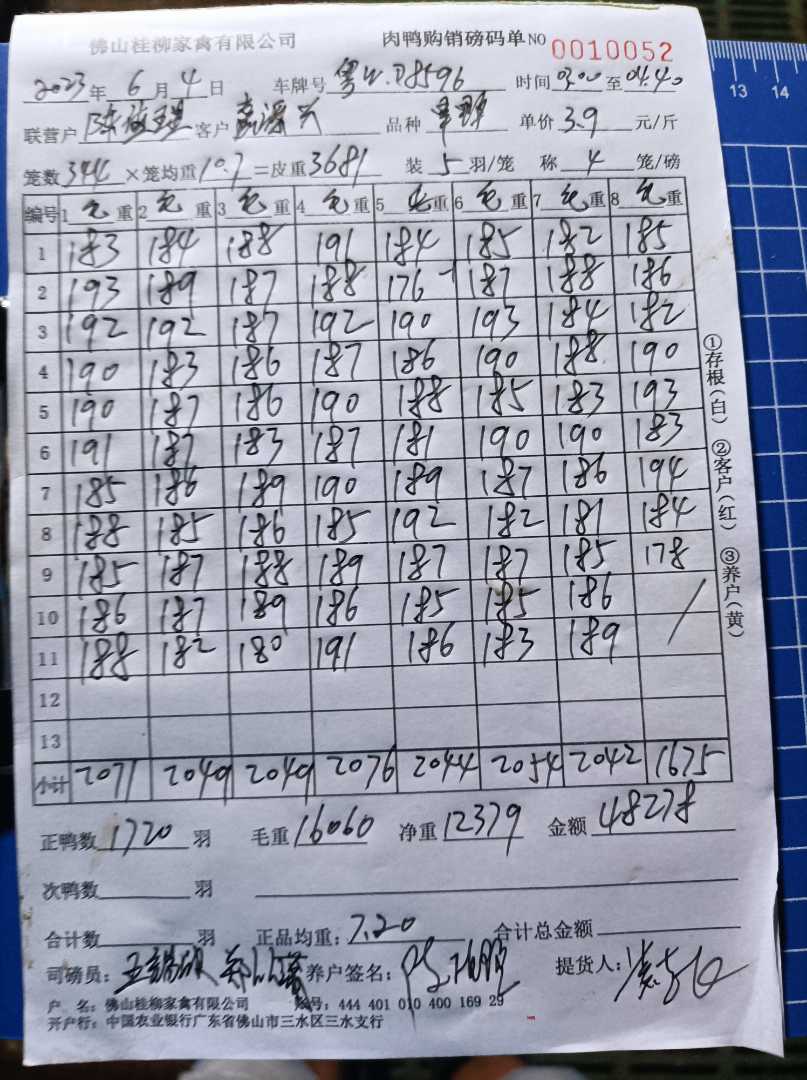 佛山桂柳家禽有限公司 肉鸭购销磅码单NO 0010052
2023年 6月 4日 车牌号 粤W.D8596 时间 03.00 至 04.40
联营户 客户 品种 单价 3.9 元/斤
笼数 344 ×笼均重 10.7 =皮重 3681 装 5 羽/笼 称 4 笼/磅
编号 1 毛重 2 毛重 3 毛重 4 毛重 5 毛重 6 毛重 7 毛重 8 毛重
1 183 184 188 191 184 185 182 185
2 193 189 187 188 176 187 188 186
3 192 192 187 192 190 193 184 182
4 190 183 186 187 186 190 188 190
5 190 187 186 190 188 185 183 193
6 191 187 183 187 181 190 190 183
7 185 186 189 190 189 187 186 194
8 188 185 186 185 192 182 181 184
9 185 187 188 189 187 187 185 178
10 186 187 189 186 185 185 186
11 188 182 180 191 186 183 189
12
13
小计 2071 2049 2049 2076 2044 2054 2042 1675
正鸭数 1720 羽 毛重 16060 净重 12379 金额 48278
次鸭数 羽
合计数 羽 正品均重: 7.20 合计总金额
司磅员: 养户签名: 提货人:
户 名: 佛山桂柳家禽有限公司 账号: 444 401 010 400 169 29
开户行: 中国农业银行广东省佛山市三水区三水支行
①存根(白) ②客户(红) ③养户(黄)
13 14